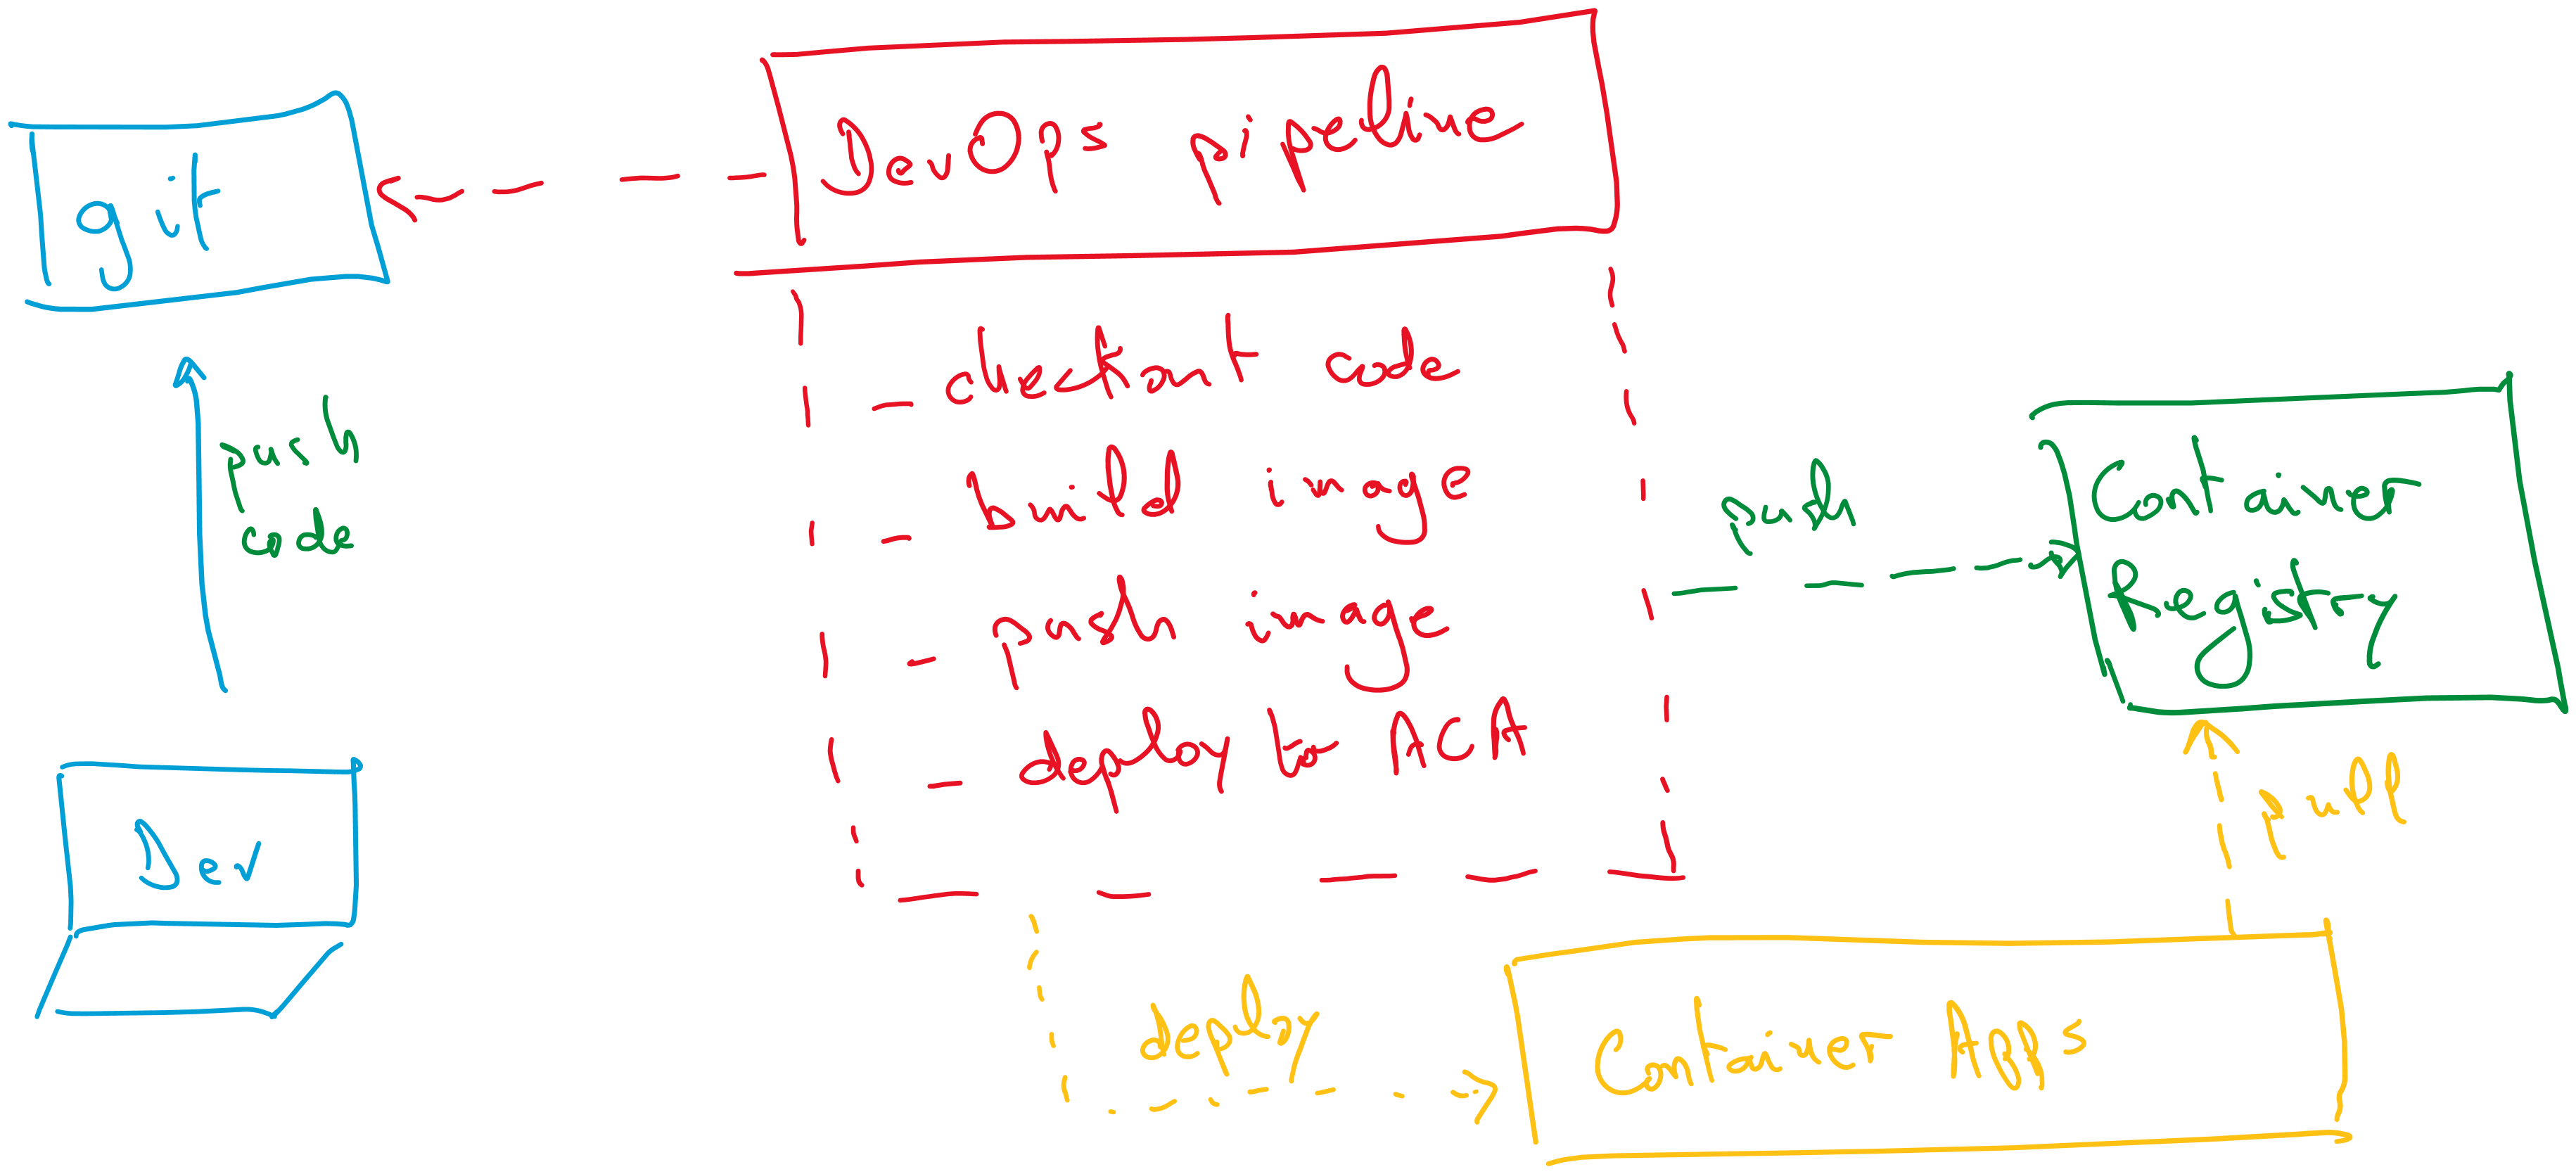 git
DevOps pipeline
push
code
- checkout code
- build image
- push image
- deploy to ACA
Dev
push
Container
Registry
pull
deploy
Container Apps